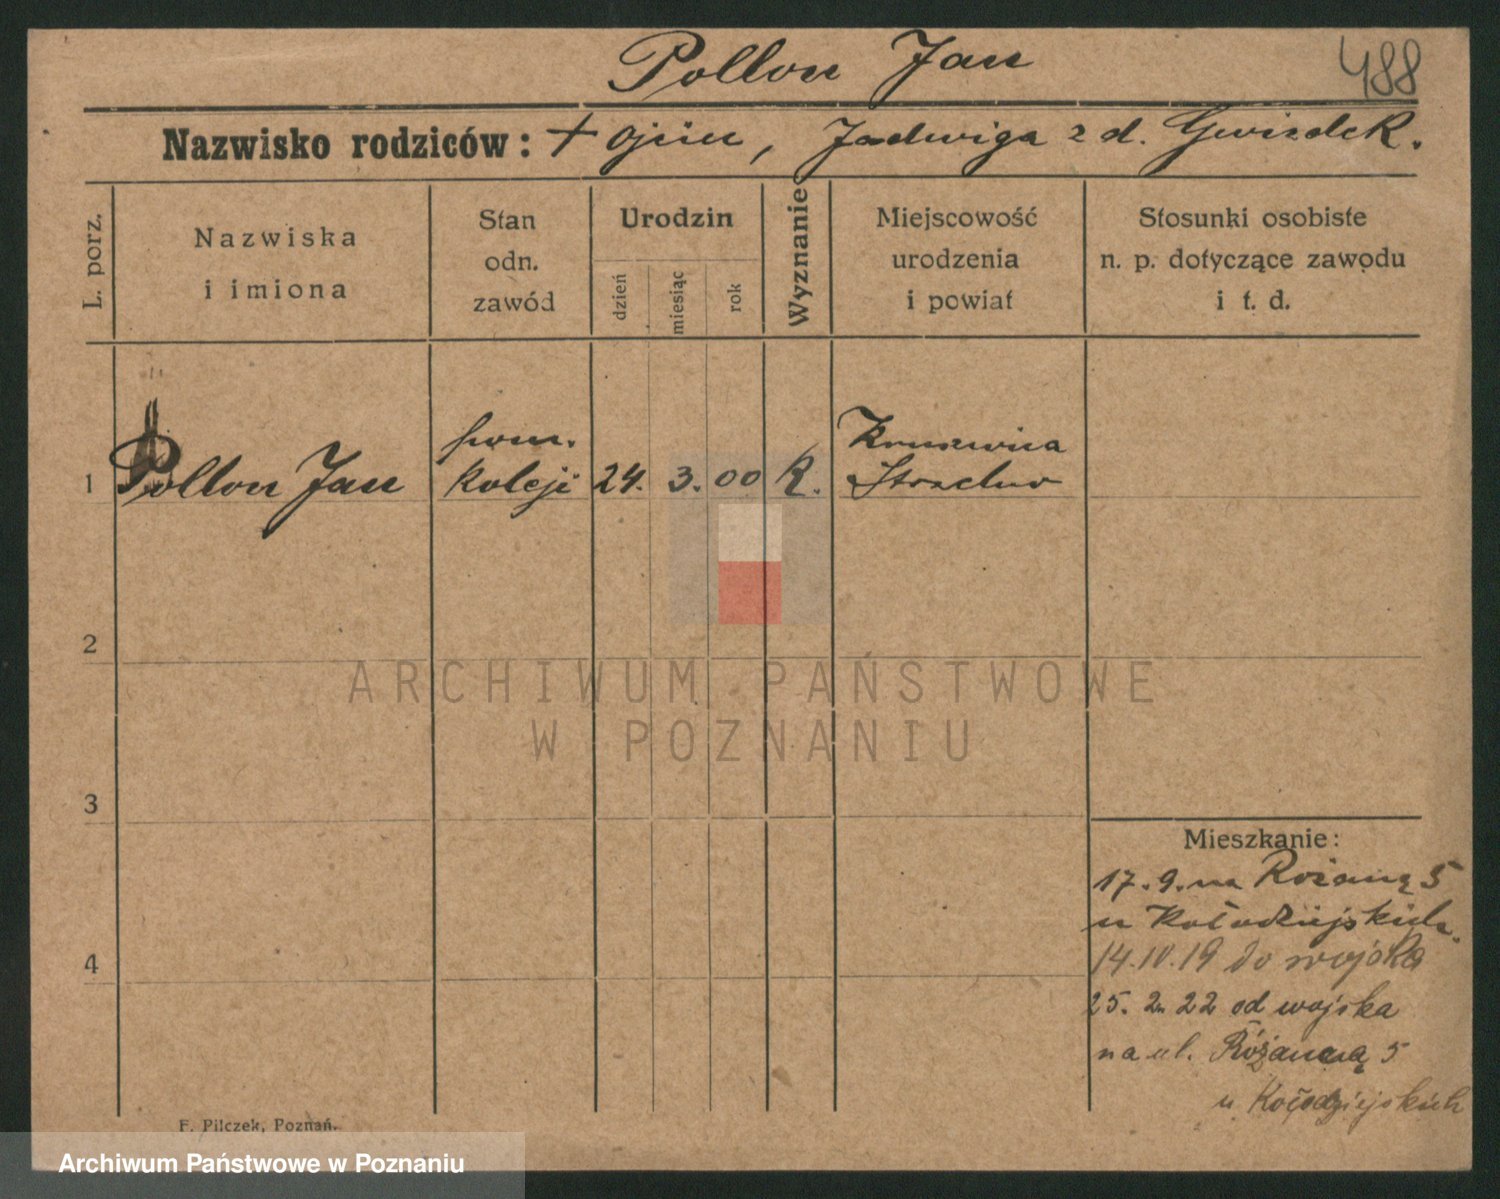 Pollon Jan
488
Nazwisko rodziców: + ojciec, Jadwiga z d. Gwizdek.
L. porz.
Nazwiska
i imiona
Stan
odn.
zawód
Urodzin
dzień
miesiąc
rok
Wyznanie
Miejscowość
urodzenia
i powiat
Stosunki osobiste
n. p. dotyczące zawodu
i t. d.
1
Pollon Jan
pom.
koleji
24.
3.
00
R.
Kruszwica
Strzelno
2
3
4
Mieszkanie:
17.9. na Różaną 5
u Kołodziejskich.
14.IV.19 do wojska
25. 2. 22 od wojska
na ul. Różanną 5
u Kołodziejskich
F. Pilczek, Poznań.
ARCHIWUM PAŃSTWOWE
W POZNANIU
Archiwum Państwowe w Poznaniu